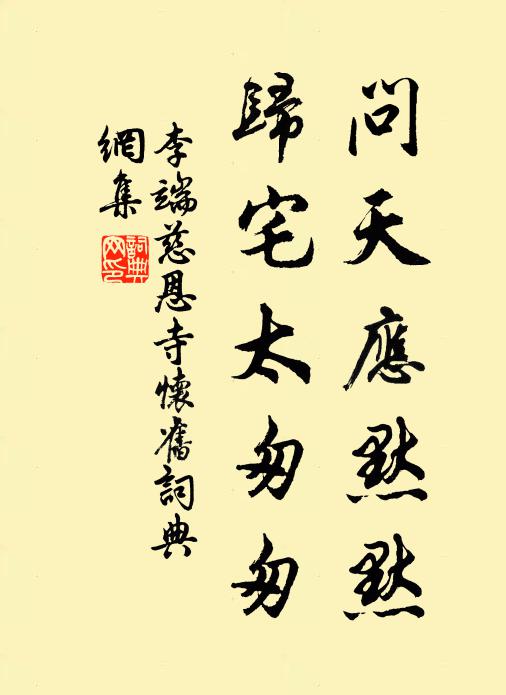 問天應默默
歸宅太匆匆
李端慈恩寺懷舊詞典
網集
詞典網印